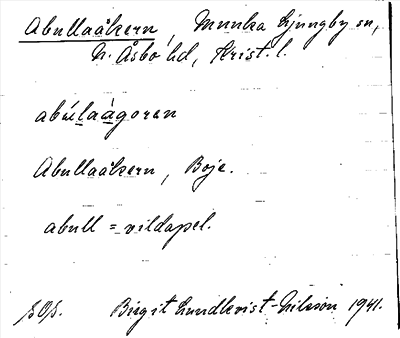 Abullaåkern, Munka Ljungby sn,
N. Åsbo hd, Krist. l.
abúlaågoren
Abullaåkern, Boje.
abull = vildapel.
Birgit Lundkvist-Nilsson 1941.